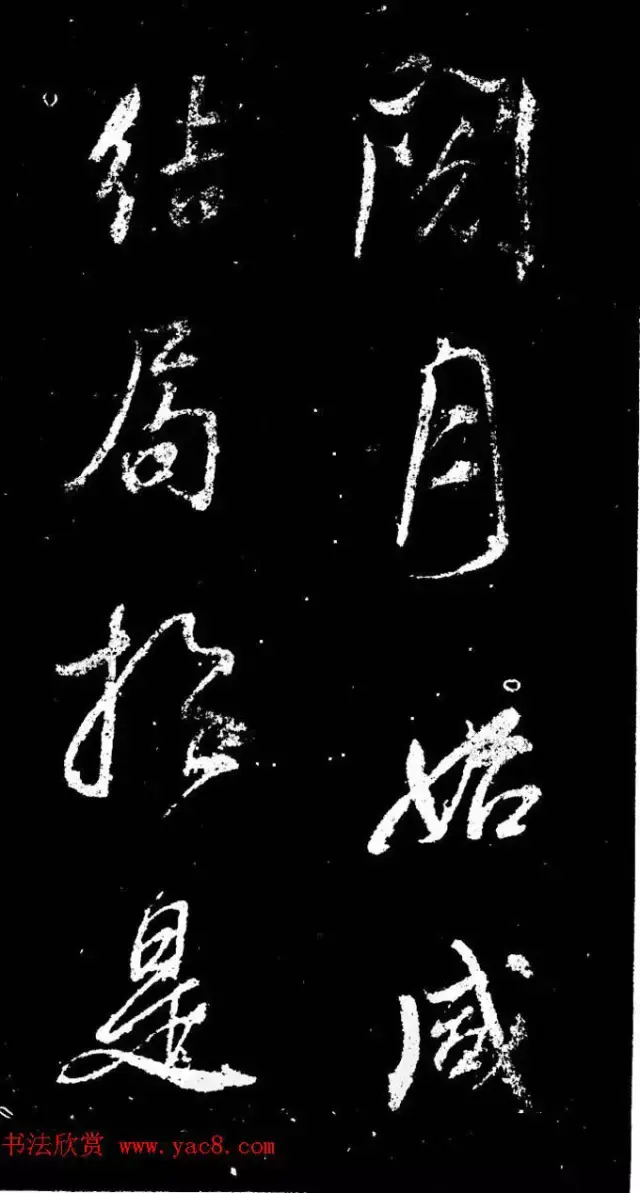 閱月始咸
結局於是
书法欣赏 www.yac8.com